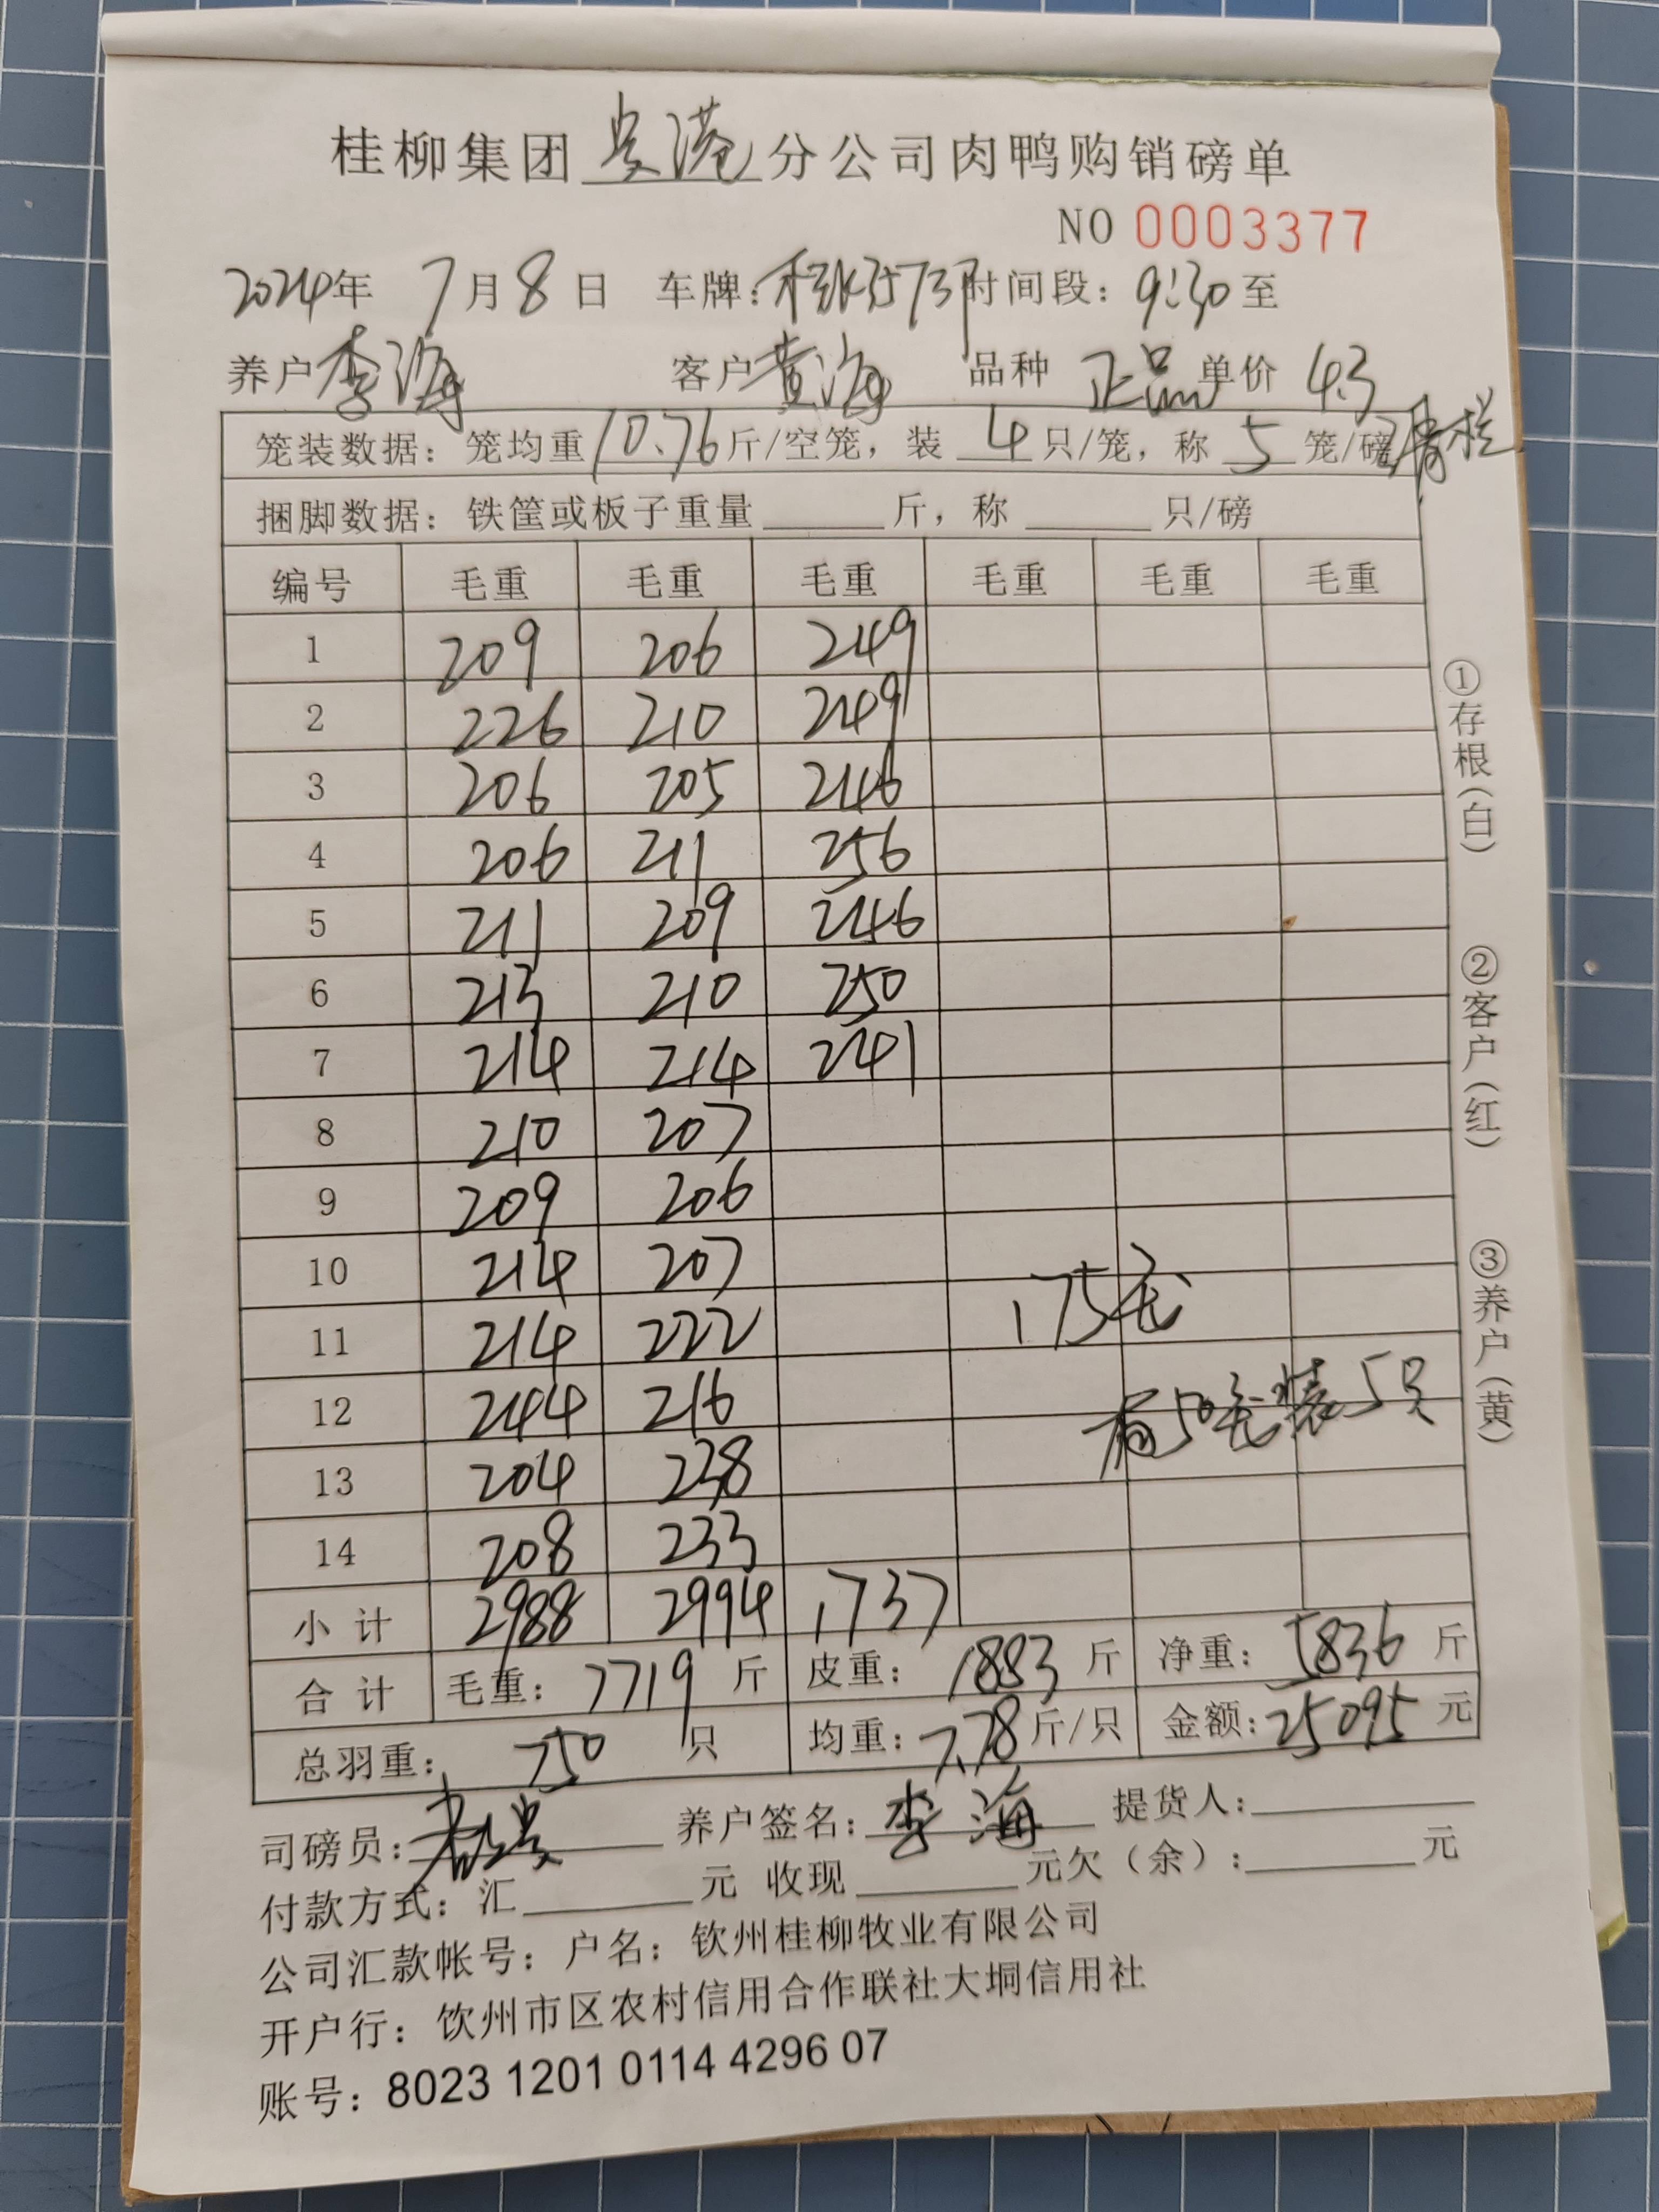 桂柳集团贵港分公司肉鸭购销磅单
NO 0003377
2024年 7月8日 车牌: 时间段: 9:30至
养户 李海 客户 黄海 品种 正品 单价 4.3
笼装数据: 笼均重10.76斤/空笼, 装 4 只/笼, 称 5 笼/磅
捆脚数据: 铁筐或板子重量 斤, 称 只/磅
编号 毛重 毛重 毛重 毛重 毛重 毛重
1 209 206 249
2 226 210 249
3 206 205 246
4 206 211 256
5 211 209 246
6 213 210 250
7 214 214 241
8 210 207
9 209 206
10 214 207
11 214 222
175毛
12 244 216
有50毛装5只
13 204 238
14 208 233
小计 2988 2994 1737
合计 毛重: 7719 斤 皮重: 1883 斤 净重: 5836 斤
总羽重: 750 只 均重: 7.78 斤/只 金额: 25095 元
司磅员: 养户签名: 李海 提货人:
付款方式: 汇 元 收现 元欠(余): 元
公司汇款帐号: 户名: 钦州桂柳牧业有限公司
开户行: 钦州市区农村信用合作联社大垌信用社
账号: 8023 1201 0114 4296 07
①存根(白) ②客户(红) ③养户(黄)